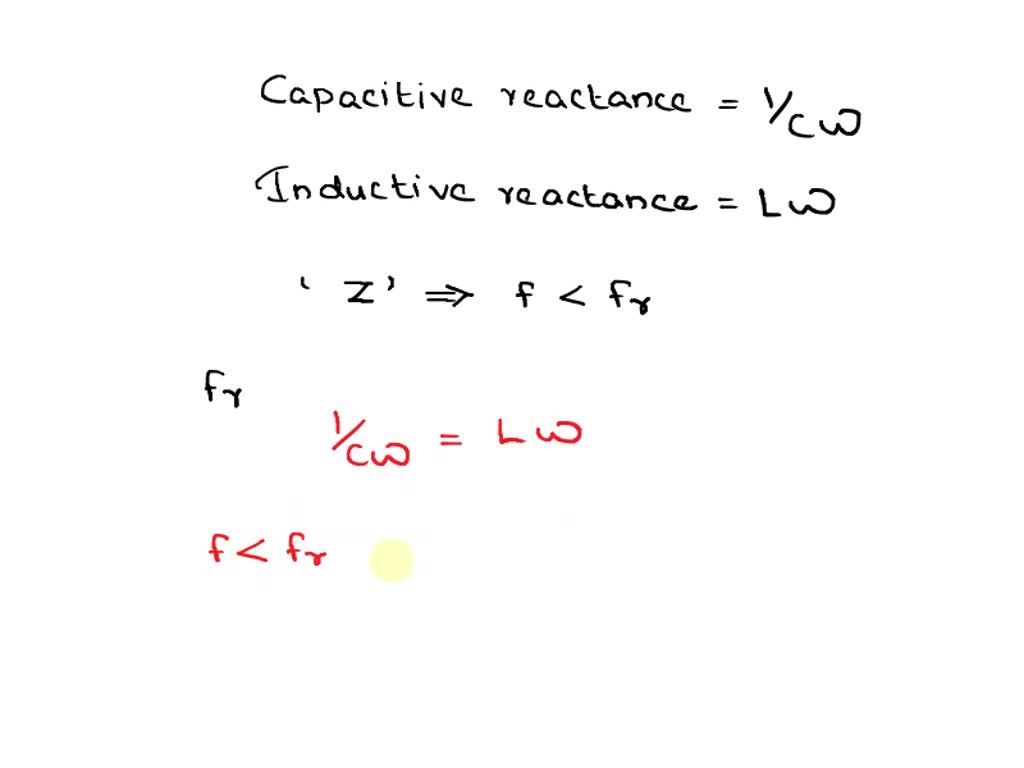 Capacitive reactance = 1/Cω
Inductive reactance = Lω
'Z' ⇒ f < fr
fr
1/Cω = Lω
f < fr